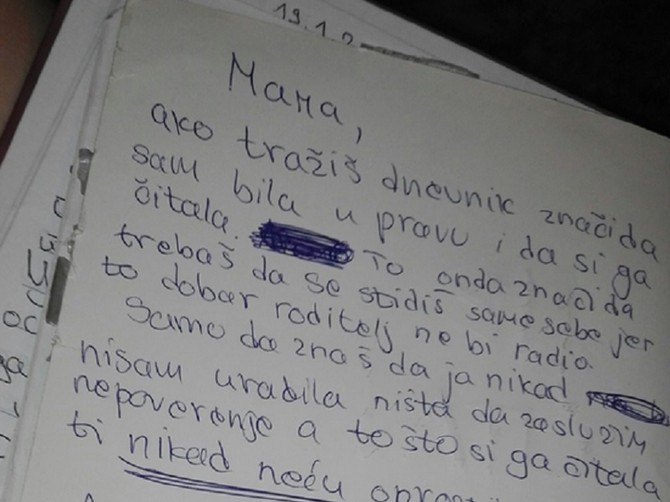 19.1.2
Мама,
ako tražiš dnevnik znači da
sam bila u pravu i da si ga
čitala. To onda znači da
trebaš da se stidiš same sebe jer
to dobar roditelj ne bi radio.
Samo da znaš da ja nikad
nisam uradila ništa da zaslužim
nepoverenje a to što si ga čitala
ti nikad neću